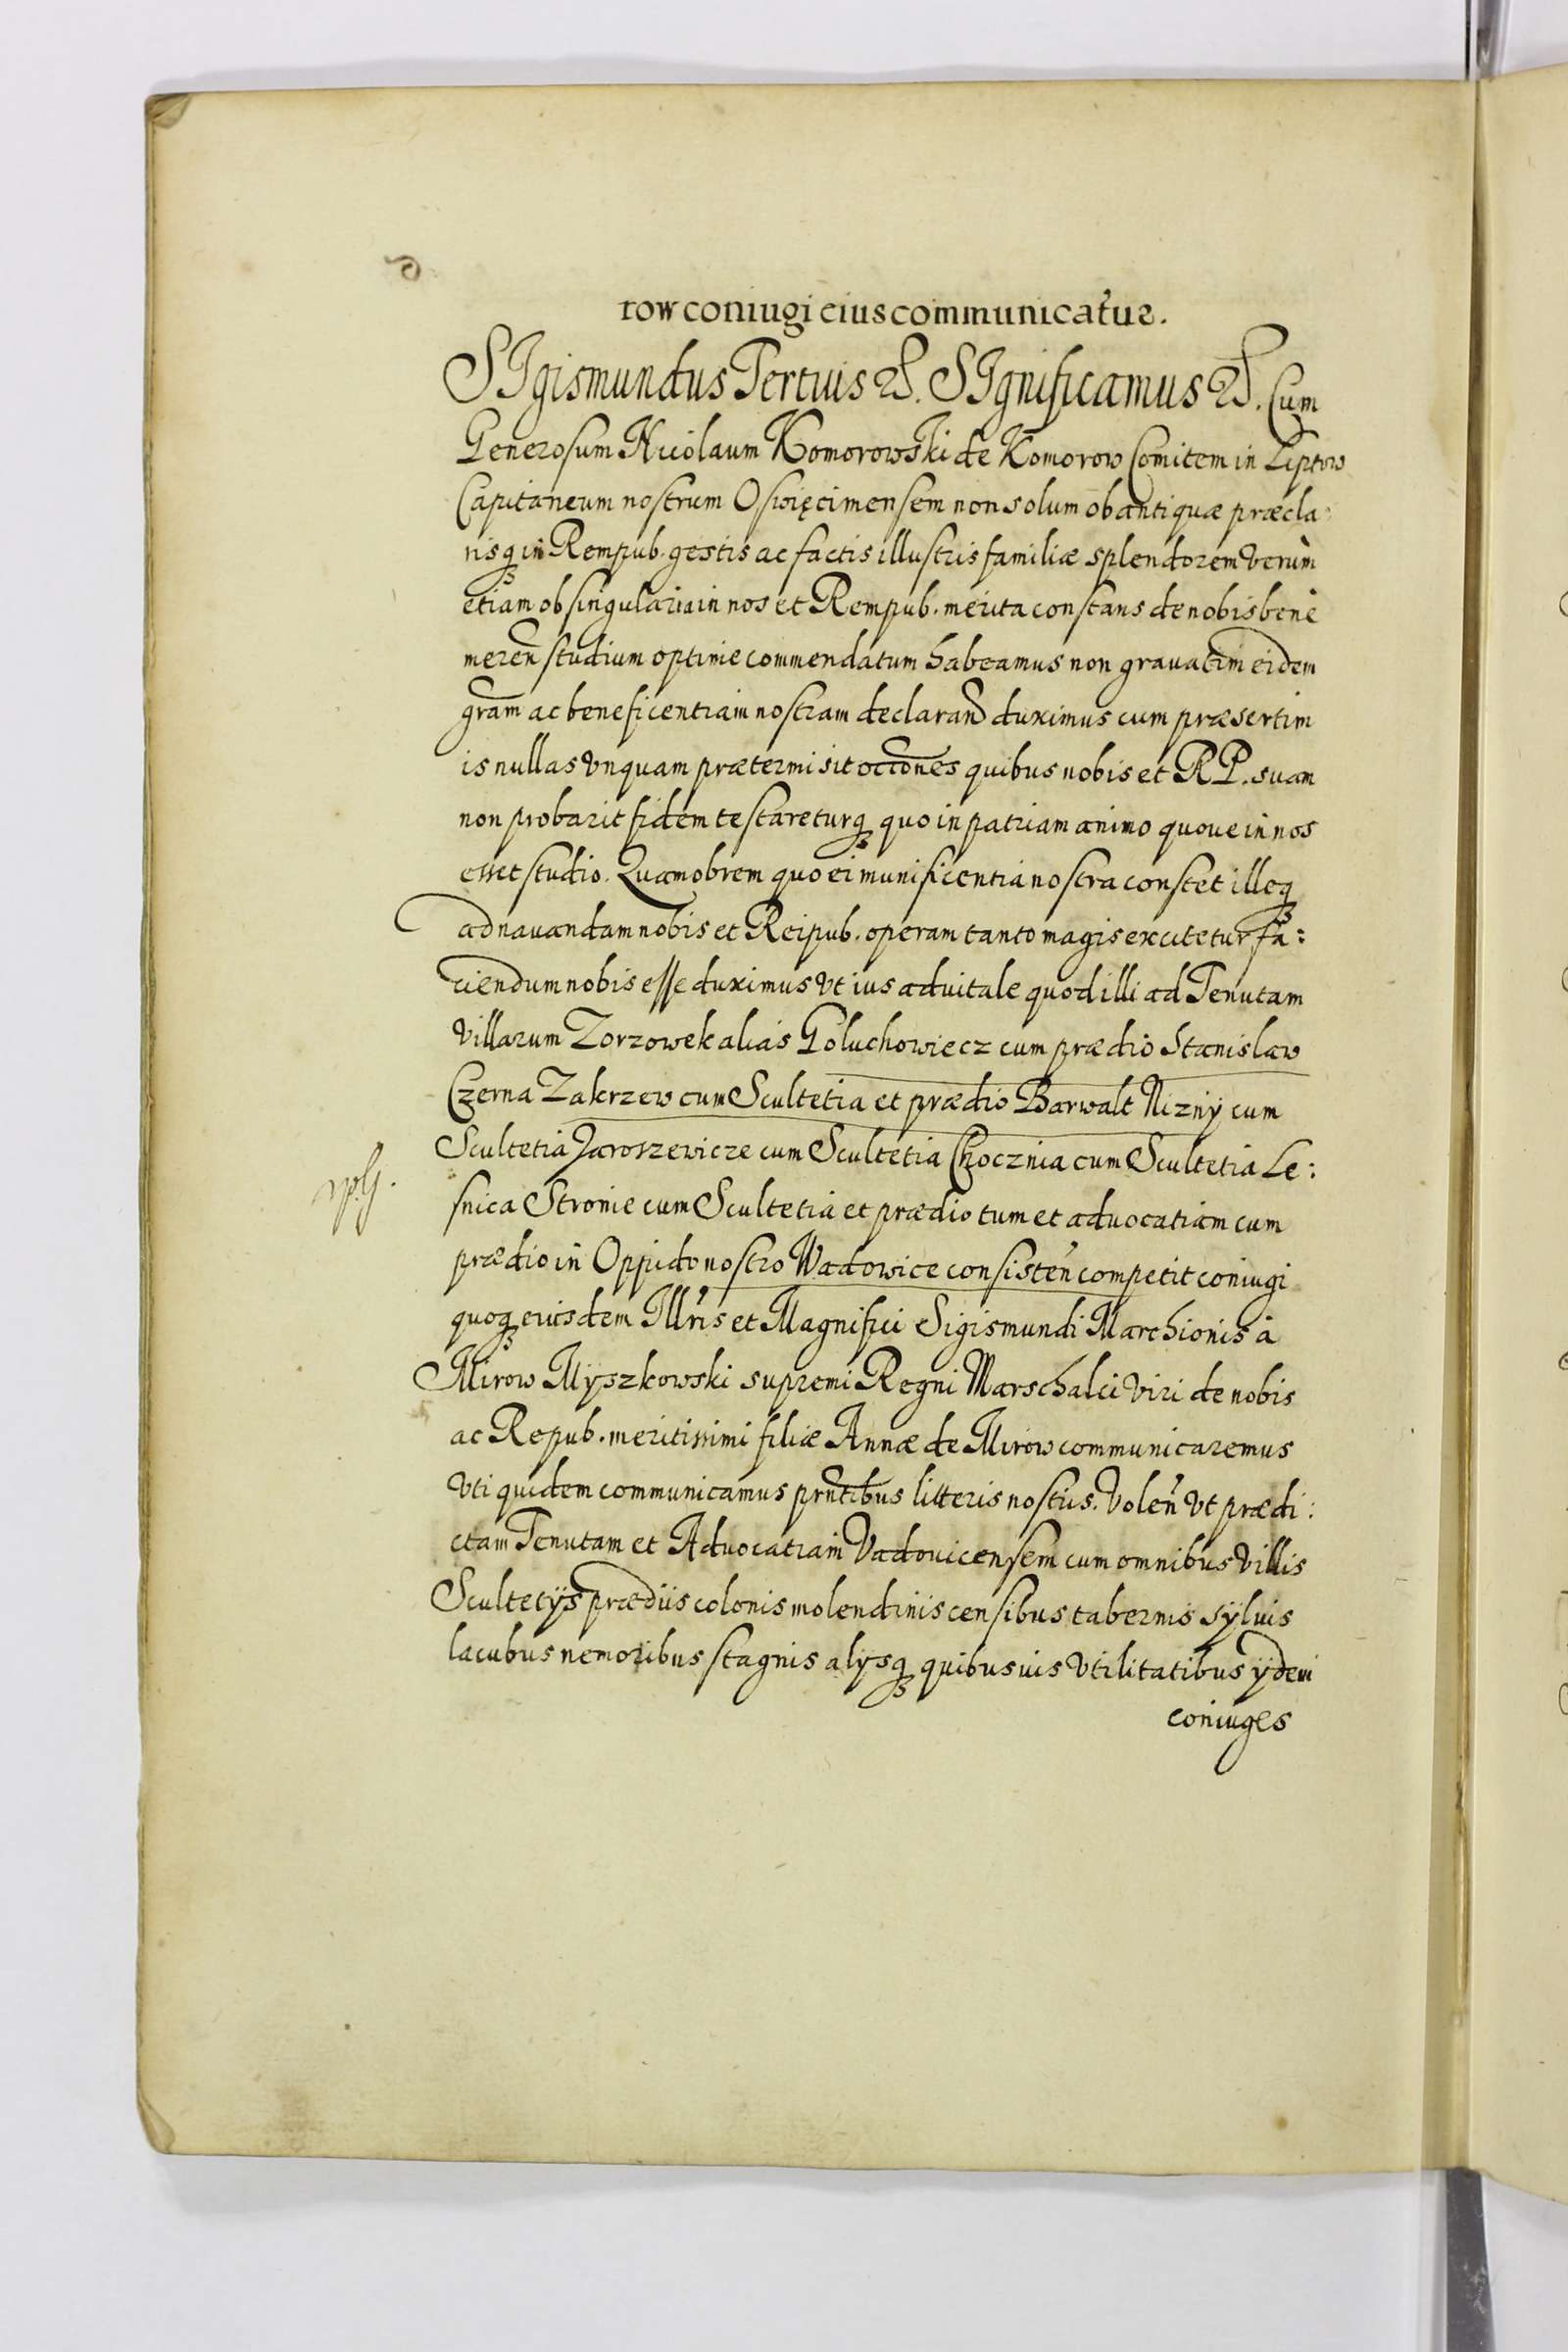 row coniugi eius communicatur.
SIgismundus Tertius &. SIgnificamus &. Cum
Generosum Nicolaum Komorowski de Komorow Comitem in Liptow
Capitaneum nostrum Oswięcimensem non solum ob antiquæ præcla:
risq in Rempub. gestis ac factis illustris familiæ splendorem verum
etiam ob singularia in nos et Rempub. merita constans de nobis bene
meren studium optime commendatum habeamus non gravatim eidem
gram ac beneficentiam nostram declarand duximus cum præsertim
is nullas vnquam prætermisit occiones quibus nobis et RP. suam
non probarit fidem testareturq quo in patriam animo quove in nos
esset studio. Quamobrem quo ei munificentia nostra constet illeq
ad navandam nobis et Reipub. operam tanto magis excitetur fa:
ciendum nobis esse duximus vt ius aduitale quod illi ad Tenutam
villarum Zorzowek alias Goluchowiecz cum prædio Stanislaw
Czerna Zakrzew cum Scultetia et prædio Barwalt Nizny cum
Scultetia Jaroszewicze cum Scultetia Chocznia cum Scultetia Le:
snica Stronie cum Scultetia et prædio tum et aduocatiam cum
prædio in Oppido nostro Wadowice consisten competit coniugi
quoq eiusdem Illris et Magnifici Sigismundi Marchionis à
Mirow Myszkowski supremi Regni Marschalci viri de nobis
ac Repub. meritissimi filiæ Annæ de Mirow communicaremus
vti quidem communicamus prntibus litteris nostris. Volen vt prædi:
ctam Tenutam et Aduocatiam Vadouicensem cum omnibus villis
Scultetijs prædiis colonis molendinis censibus tabernis sÿluis
lacubus nemoribus stagnis alijsq quibusuis vtilitatibus ÿdem
coniuges